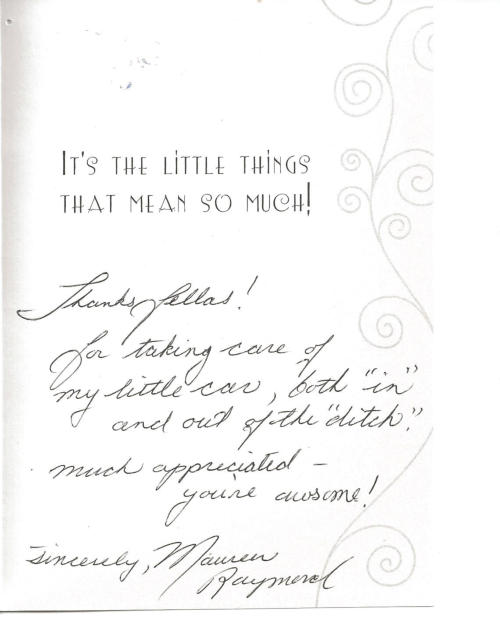 IT'S THE LITTLE THINGS
THAT MEAN SO MUCH!
Thanks fellas!
for taking care of
my little car, both "in"
and out of the "ditch".
much appreciated –
you're awsome!
Sincerely, Maureen
Raymond